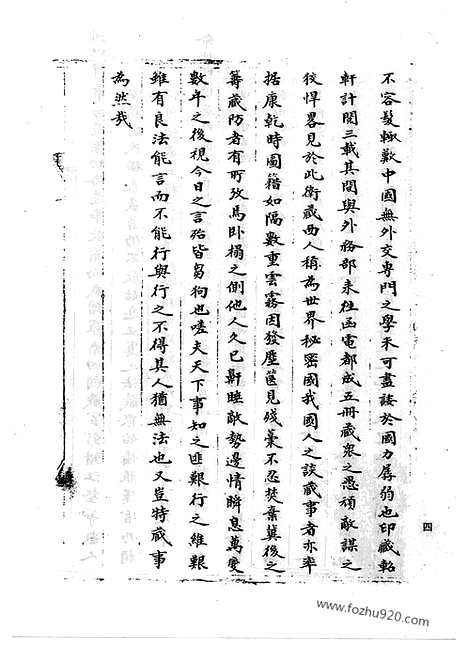 不容髮輒歎中國無外交專門之學未可盡諉於國力孱弱也印藏軺
軒計閱三載其間與外務部來往函電都成五冊藏眾之愚頑敵謀之
狡悍畧見於此衛藏西人稱為世界秘密國我國人之談藏事者亦率
据康乾時圖籍如隔數重雲霧因發塵篋見殘藁不忍焚棄冀後之
籌藏防者有所攷焉卧榻之側他人久已鼾睡敵勢邊情瞬息萬變
數年之後視今日之言殆皆芻狗也嗟夫天下事知之匪艱行之維艱
雖有良法能言而不能行與行之不得其人猶無法也又豈特藏事
為然哉
四
www.fozhu920.com